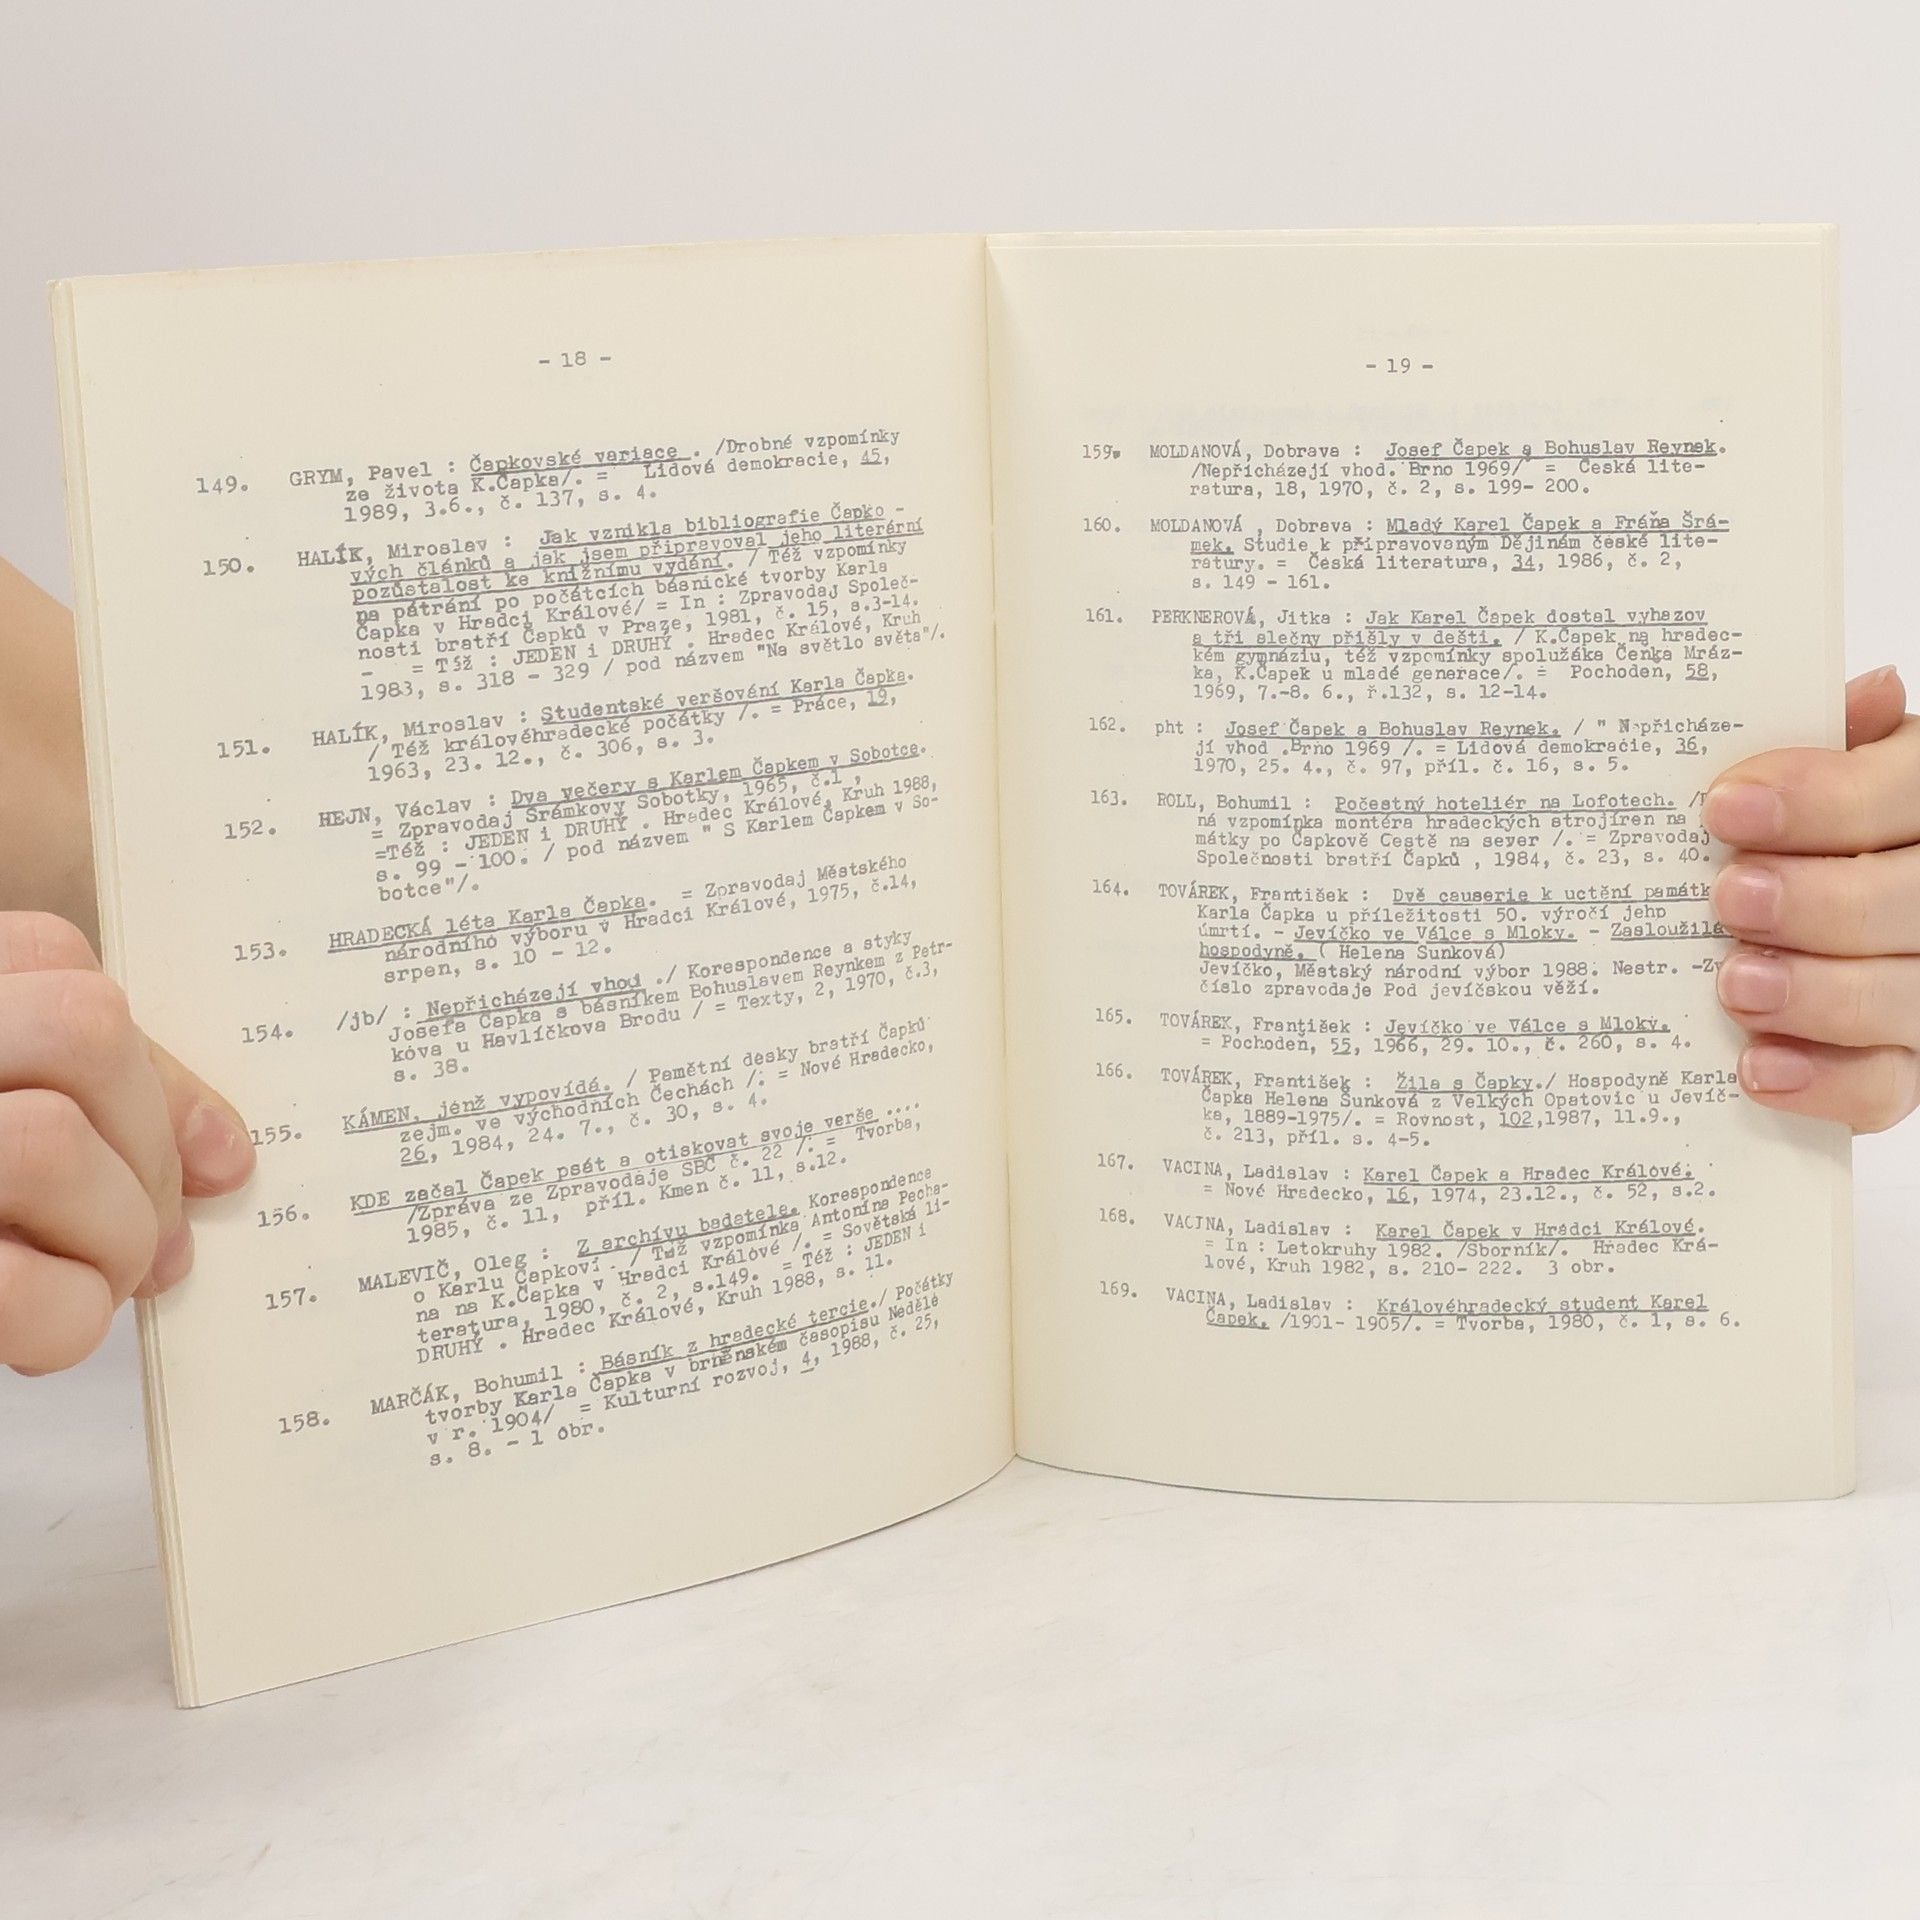 - 18 -
149. GRYM, Pavel : Čapkovské variace . /Drobné vzpomínky
ze života K.Čapka/. = Lidová demokracie, 45,
1989, 3.6., č. 137, s. 4.
150. HALÍK, Miroslav : Jak vznikla bibliografie Čapko -
vých článků a jak jsem připravoval jeho literární
pozůstalost ke knižnímu vydání. / Též vzpomínky
na pátrání po počátcích básnické tvorby Karla
Čapka v Hradci Králové/ = In : Zpravodaj Společ-
nosti bratří Čapků v Praze, 1981, č. 15, s.3-14.
- = Též : JEDEN i DRUHÝ . Hradec Králové, Kruh
1983, s. 318 - 329 / pod názvem "Na světlo světa"/.
151. HALÍK, Miroslav : Studentské veršování Karla Čapka.
/ Též královéhradecké počátky /. = Práce, 19,
1963, 23. 12., č. 306, s. 3.
152. HEJN, Václav : Dva večery s Karlem Čapkem v Sobotce.
= Zpravodaj Šrámkovy Sobotky, 1965, č.1 ,
=Též : JEDEN i DRUHÝ . Hradec Králové, Kruh 1988,
s. 99 - 100. / pod názvem " S Karlem Čapkem v So-
botce"/.
153. HRADECKÁ léta Karla Čapka. = Zpravodaj Městského
národního výboru v Hradci Králové, 1975, č.14,
srpen, s. 10 - 12.
154. /jb/ : Nepřicházejí vhod ./ Korespondence a styky
Josefa Čapka s básníkem Bohuslavem Reynkem z Petr-
kova u Havlíčkova Brodu / = Texty, 2, 1970, č.3,
s. 38.
155. KÁMEN, jenž vypovídá. / Pamětní desky bratří Čapků
zejm. ve východních Čechách /. = Nové Hradecko,
26, 1984, 24. 7., č. 30, s. 4.
156. KDE začal Čapek psát a otiskovat svoje verše ....
/Zpráva ze Zpravodaje SBČ č. 22 /. = Tvorba,
1985, č. 11, příl. Kmen č. 11, s.12.
157. MALEVIČ, Oleg : Z archívu badatele. Korespondence
o Karlu Čapkovi . / Též vzpomínka Antonína Pecha-
na na K.Čapka v Hradci Králové /. = Sovětská li-
teratura, 1980, č. 2, s.149. = Též : JEDEN i
DRUHÝ . Hradec Králové, Kruh 1988, s. 11.
158. MARČÁK, Bohumil : Básník z hradecké tercie./ Počátky
tvorby Karla Čapka v brněnském časopisu Neděle
v r. 1904/ = Kulturní rozvoj, 4, 1988, č. 25,
s. 8. - 1 obr.
- 19 -
159. MOLDANOVÁ, Dobrava : Josef Čapek a Bohuslav Reynek.
/Nepřicházejí vhod. Brno 1969/ = Česká lite-
ratura, 18, 1970, č. 2, s. 199- 200.
160. MOLDANOVÁ , Dobrava : Mladý Karel Čapek a Fráňa Šrá-
mek. Studie k připravovaným Dějinám české lite-
ratury. = Česká literatura, 34, 1986, č. 2,
s. 149 - 161.
161. PERKNEROVÁ, Jitka : Jak Karel Čapek dostal vyhazov
a tři slečny přišly v dešti. / K.Čapek na hradec-
kém gymnáziu, též vzpomínky spolužáka Čeňka Mráz-
ka, K.Čapek u mladé generace/. = Pochodeň, 58,
1969, 7.-8. 6., ř.132, s. 12-14.
162. pht : Josef Čapek a Bohuslav Reynek. / " Nepřicháze-
jí vhod .Brno 1969 /. = Lidová demokracie, 36,
1970, 25. 4., č. 97, příl. č. 16, s. 5.
163. ROLL, Bohumil : Počestný hoteliér na Lofotech.
ná vzpomínka montéra hradeckých strojíren na
mátky po Čapkově Cestě na sever /. = Zpravodaj
Společnosti bratří Čapků , 1984, č. 23, s. 40.
164. TOVÁREK, František : Dvě causerie k uctění památk
Karla Čapka u příležitosti 50. výročí jeho
úmrtí. - Jevíčko ve Válce s Mloky. - Zasloužilá
hospodyně. ( Helena Šunková)
Jevíčko, Městský národní výbor 1988. Nestr. -Zv
číslo zpravodaje Pod jevíčskou věží.
165. TOVÁREK, František : Jevíčko ve Válce s Mloky.
= Pochodeň, 55, 1966, 29. 10., č. 260, s. 4.
166. TOVÁREK, František : Žila s Čapky./ Hospodyně Karla
Čapka Helena Šunková z Velkých Opatovic u Jevíč-
ka, 1889-1975/. = Rovnost, 102,1987, 11.9.,
č. 213, příl. s. 4-5.
167. VACINA, Ladislav : Karel Čapek a Hradec Králové.
= Nové Hradecko, 16, 1974, 23.12., č. 52, s.2.
168. VACINA, Ladislav : Karel Čapek v Hradci Králové.
= In : Letokruhy 1982. /Sborník/. Hradec Krá-
lové, Kruh 1982, s. 210- 222. 3 obr.
169. VACINA, Ladislav : Královéhradecký student Karel
Čapek. /1901- 1905/. = Tvorba, 1980, č. 1, s. 6.